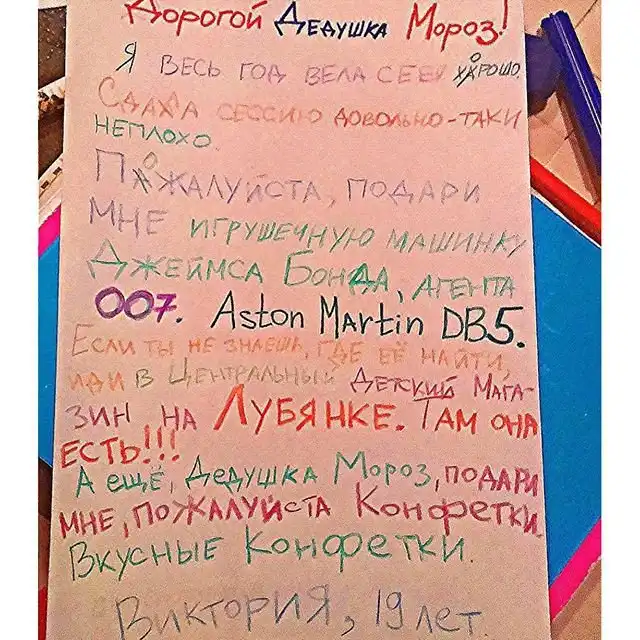 Дорогой Дедушка Мороз!
Я весь год вела себя хорошо.
Сдаха сессию довольно-таки
неплохо.
Пожалуйста, подари
мне игрушечную машинку
Джеймса Бонда, агента
007. Aston Martin DB5.
Если ты не знаешь, где её найти,
иди в Центральный Детский Мага-
зин на Лубянке. Там она
есть!!!
А ещё, Дедушка Мороз, подари
мне, пожалуйста конфетки.
Вкусные конфетки.
Виктория, 19 лет.